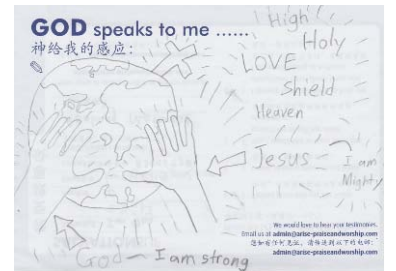 GOD speaks to me ......
神给我的感应:
High
Holy
LOVE
Shield
Heaven
Jesus
I am
Mighty
We would love to hear your testimonies.
Email us at admin@arise-praiseandworship.com
您如有任何见证,请传送到以下的电邮:
admin@arise-praiseandworship.com
God - I am strong